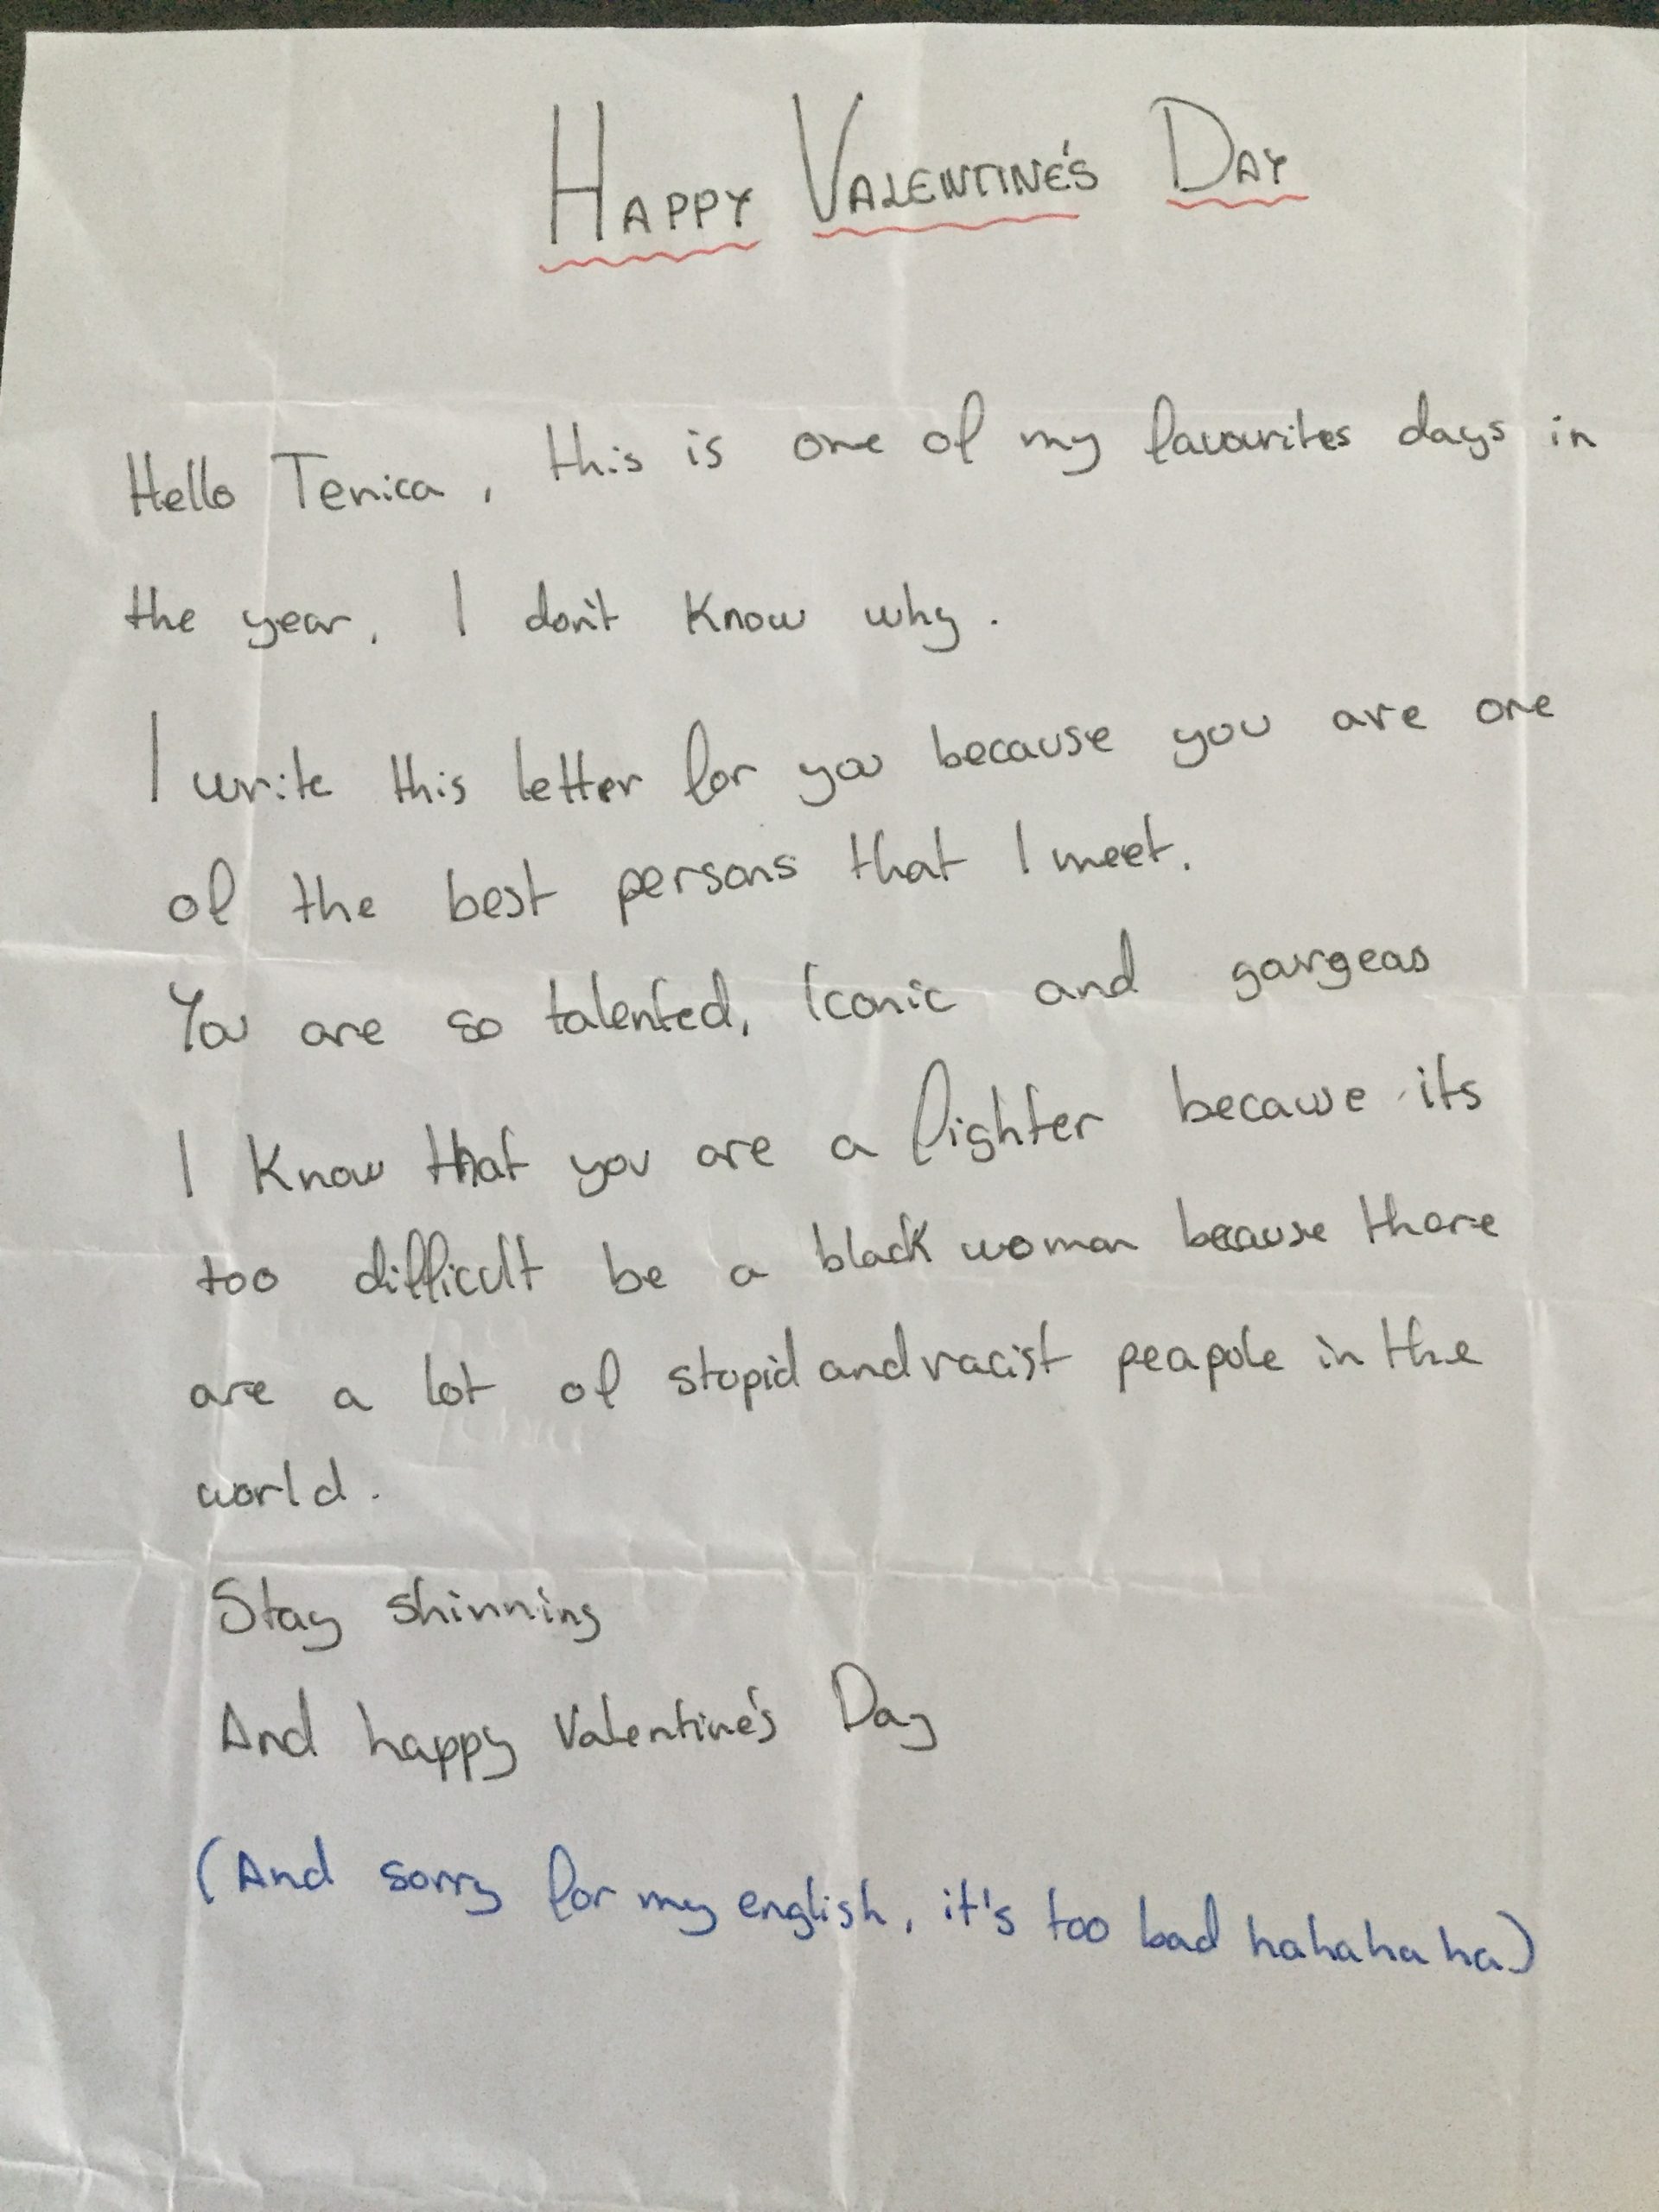 HAPPY VALENTINE'S DAY
Hello Tenica, this is one of my favourites days in
the year, I don't know why.
I write this letter for you because you are one
of the best persons that I meet.
You are so talented, Iconic and gourgeos
I know that you are a fighter because its
too difficult be a black woman because there
are a lot of stupid and racist peapole in the
world.
Stay shinning
And happy Valentine's Day
(And sorry for my english, it's too bad hahahaha)